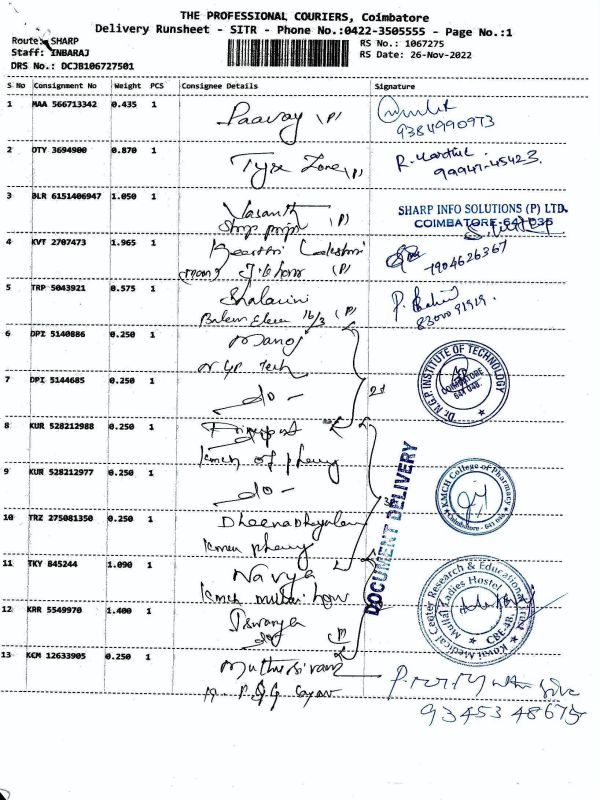 THE PROFESSIONAL COURIERS, Coimbatore
Delivery Runsheet - SITR - Phone No.:0422-3505555 - Page No.:1
Route: SHARP
Staff: INBARAJ
DRS No.: DCJB106727501
RS No.: 1067275
RS Date: 26-Nov-2022
S No Consignment No Weight PCS Consignee Details Signature
1 MAA 566713342 0.435 1 Paavay (P)
9384990973
2 DTY 3694900 0.870 1 Tyre Zone (P) R. Karthik
99941-45423
3 BLR 6151406947 1.050 1 Vasanth (P)
SHARP INFO SOLUTIONS (P) LTD.
COIMBATORE-641 035
4 KVT 2707473 1.965 1 Keerthi (P)
7904626367
5 TRP 5043921 0.575 1 Shalaini
16/3 (P)
83000 91919
6 DPI 5140886 0.250 1 Manoj
NGP Tech
7 DPI 5144685 0.250 1 - do -
Dr. N.G.P. INSTITUTE OF TECHNOLOGY
COIMBATORE
641 048
8 KUR 528212988 0.250 1
kmch of pharmy
9 KUR 528212977 0.250 1 - do -
KMCH College of Pharmacy
Coimbatore - 641 048
DOCUMENT DELIVERY
10 TRZ 275081350 0.250 1 Dheenadhayalan
kmch
11 TKY 845244 1.090 1 Navya
kmch mullai
12 KRR 5549970 1.400 1 Iswarya
(P)
Kovai Medical Center Research & Educational Trust
Mullai Ladies Hostel
CBE-48.
13 KCM 12633905 0.250 1 Muthusivam
9345348675